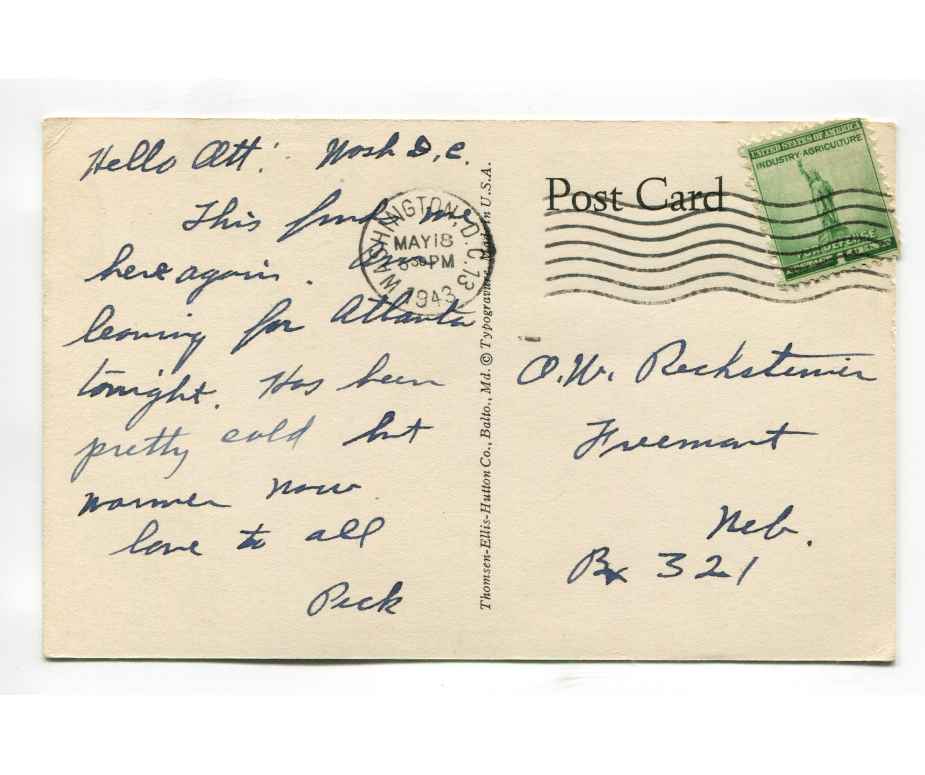 Hello Ott! Wash D.C.
This finds me
here again. Am
leaving for Atlanta
tonight. Has been
pretty cold but
warmer now.
love to all
Peck
WASHINGTON, D.C. 13
MAY 18
PM
1943
Thomsen-Ellis-Hutton Co., Balto., Md. © Typogravure Made in U.S.A.
Post Card
UNITED STATES OF AMERICA
INDUSTRY·AGRICULTURE
FOR DEFENSE
O.W.
Freemont
Neb.
Bx 321